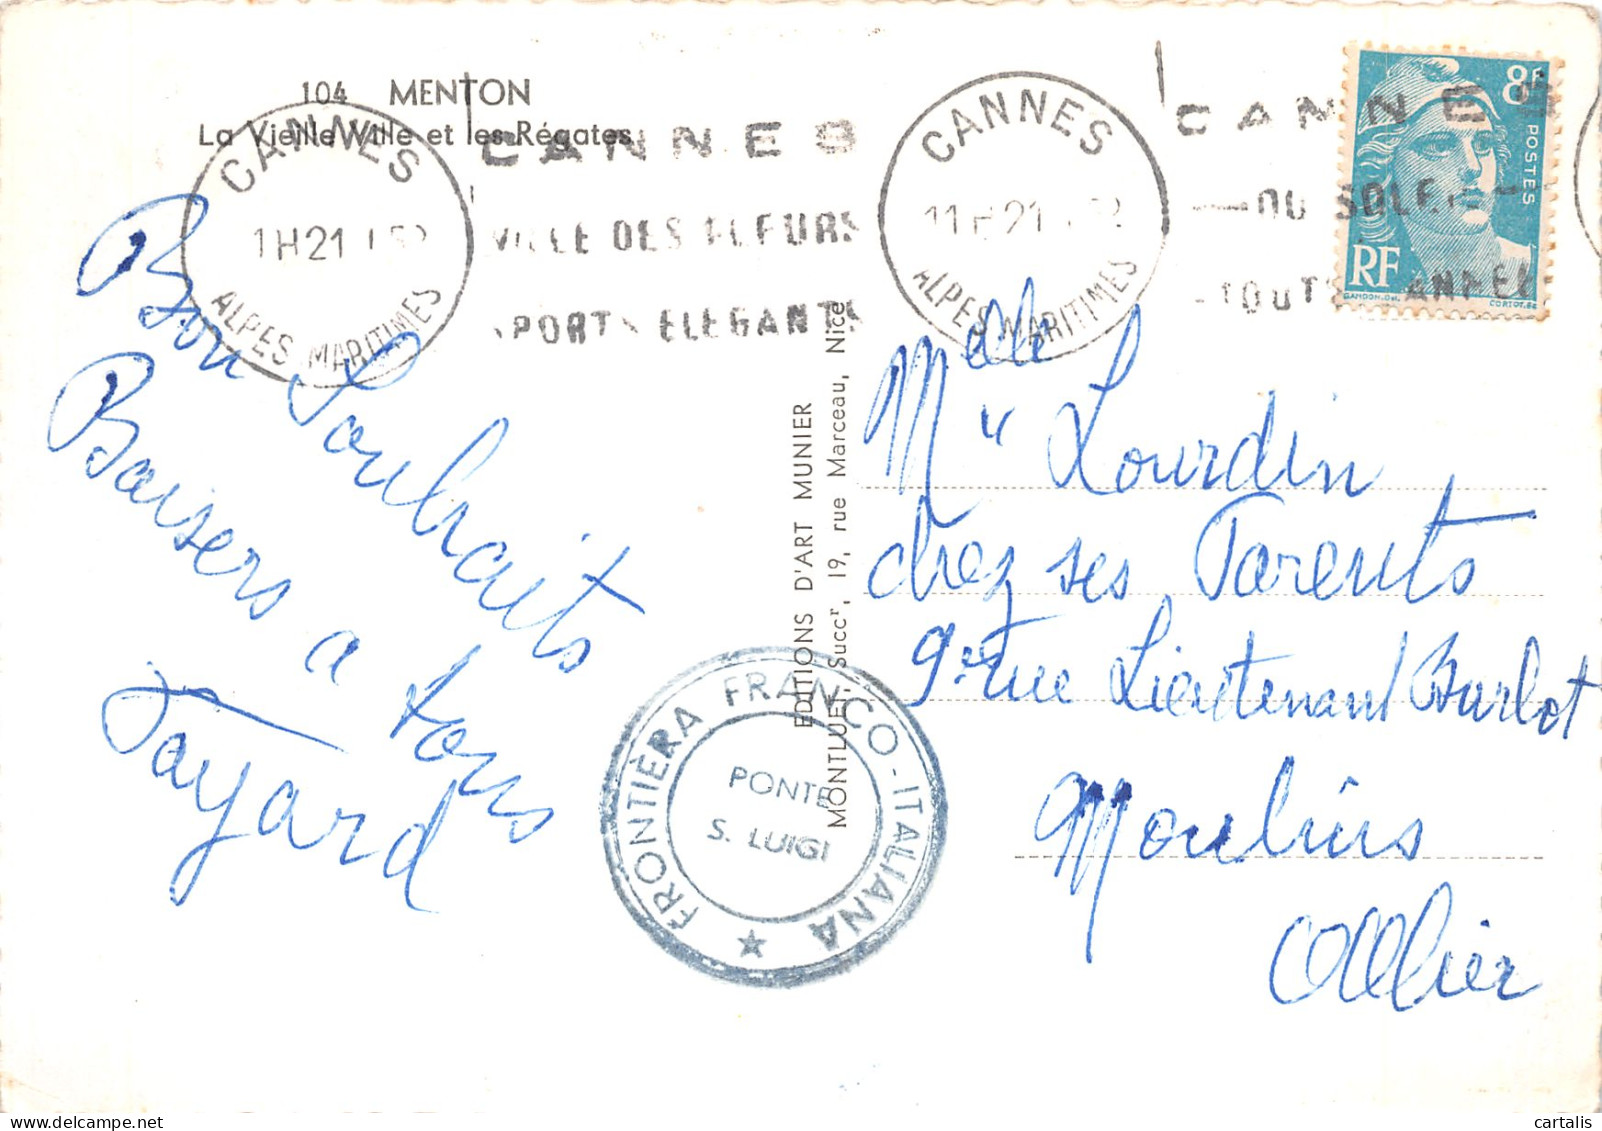 104 MENTON
La Vieille Ville et les Régates
CANNES
ALPES MARITIMES
CANNES
VILLE DES FLEURS
SPORTS ELEGANTS
CANNES
11H21
ALPES MARITIMES
CANNES
DU SOLEIL
TOUTE L'ANNEE
8F
POSTES
RF
GANDON.
CORTOT.
Bon Souhaits
Baisers a tous
Fayard
EDITIONS D'ART MUNIER
MONTLUET, Succr, 19, rue Marceau, Nice
FRONTIÈRA FRANCO-ITALIANA
PONTE
S. LUIGI
Melle
M" Lourdin
chez ses Parents
rue Lieutenant Burlot
Moulins
Allier
cartalis www.delcampe.net